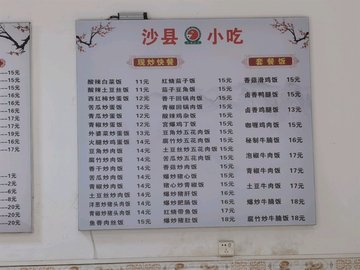 沙县 小吃
现炒快餐
套餐饭
酸辣白菜饭 11元
酸辣土豆丝饭 11元
西红柿炒蛋饭 12元
苦瓜炒蛋饭 12元
青瓜炒蛋饭 12元
青椒炒蛋饭 12元
外婆菜炒蛋饭 13元
火腿炒鸡蛋饭 14元
豆角炒肉饭 14元
腐竹炒肉饭 14元
香干炒肉饭 14元
苦瓜炒肉饭 14元
青椒炒肉饭 14元
土豆丝炒肉饭 14元
洋葱炒猪头肉饭 14元
青椒炒猪头肉饭 14元
鱼香肉丝饭 15元
红烧茄子饭 15元
茄子豆角饭 15元
香干回锅肉饭 15元
青椒回锅肉饭 15元
酸辣鸡杂饭 15元
宫爆鸡丁饭 15元
豆角炒五花肉饭 15元
腐竹炒五花肉饭 15元
土豆炒五花肉饭 15元
苦瓜炒五花肉饭 15元
爆炒猪心饭 16元
猪心炒青椒饭 16元
爆炒猪肝饭 16元
爆炒肥肠饭 16元
红烧带鱼饭 17元
爆炒猪肚饭 18元
香菇滑鸡饭 15元
卤香鸭腿饭 15元
卤香鸡腿饭 13元
咖喱鸡肉饭 15元
秘制牛腩饭 16元
泡椒牛肉饭 17元
青椒牛肉饭 17元
土豆牛肉饭 17元
爆炒牛腩饭 18元
腐竹炒牛腩饭 18元